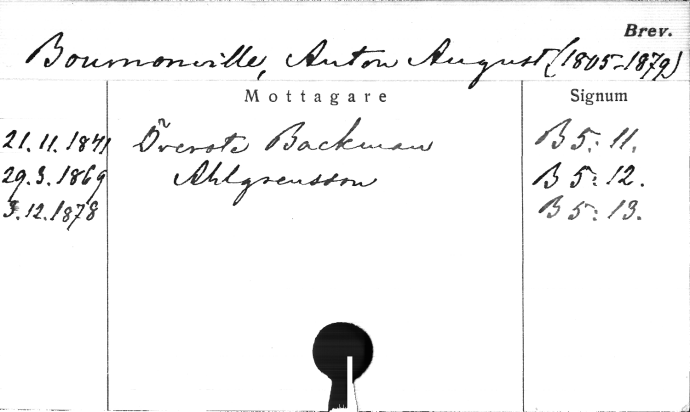 Brev.
Bournonville, Anton August (1805-1879)
Mottagare Signum
21.11.1841 Överste Backman B 5: 11.
29.3.1869 Ahlgrensson B 5: 12.
3.12.1878 B 5: 13.